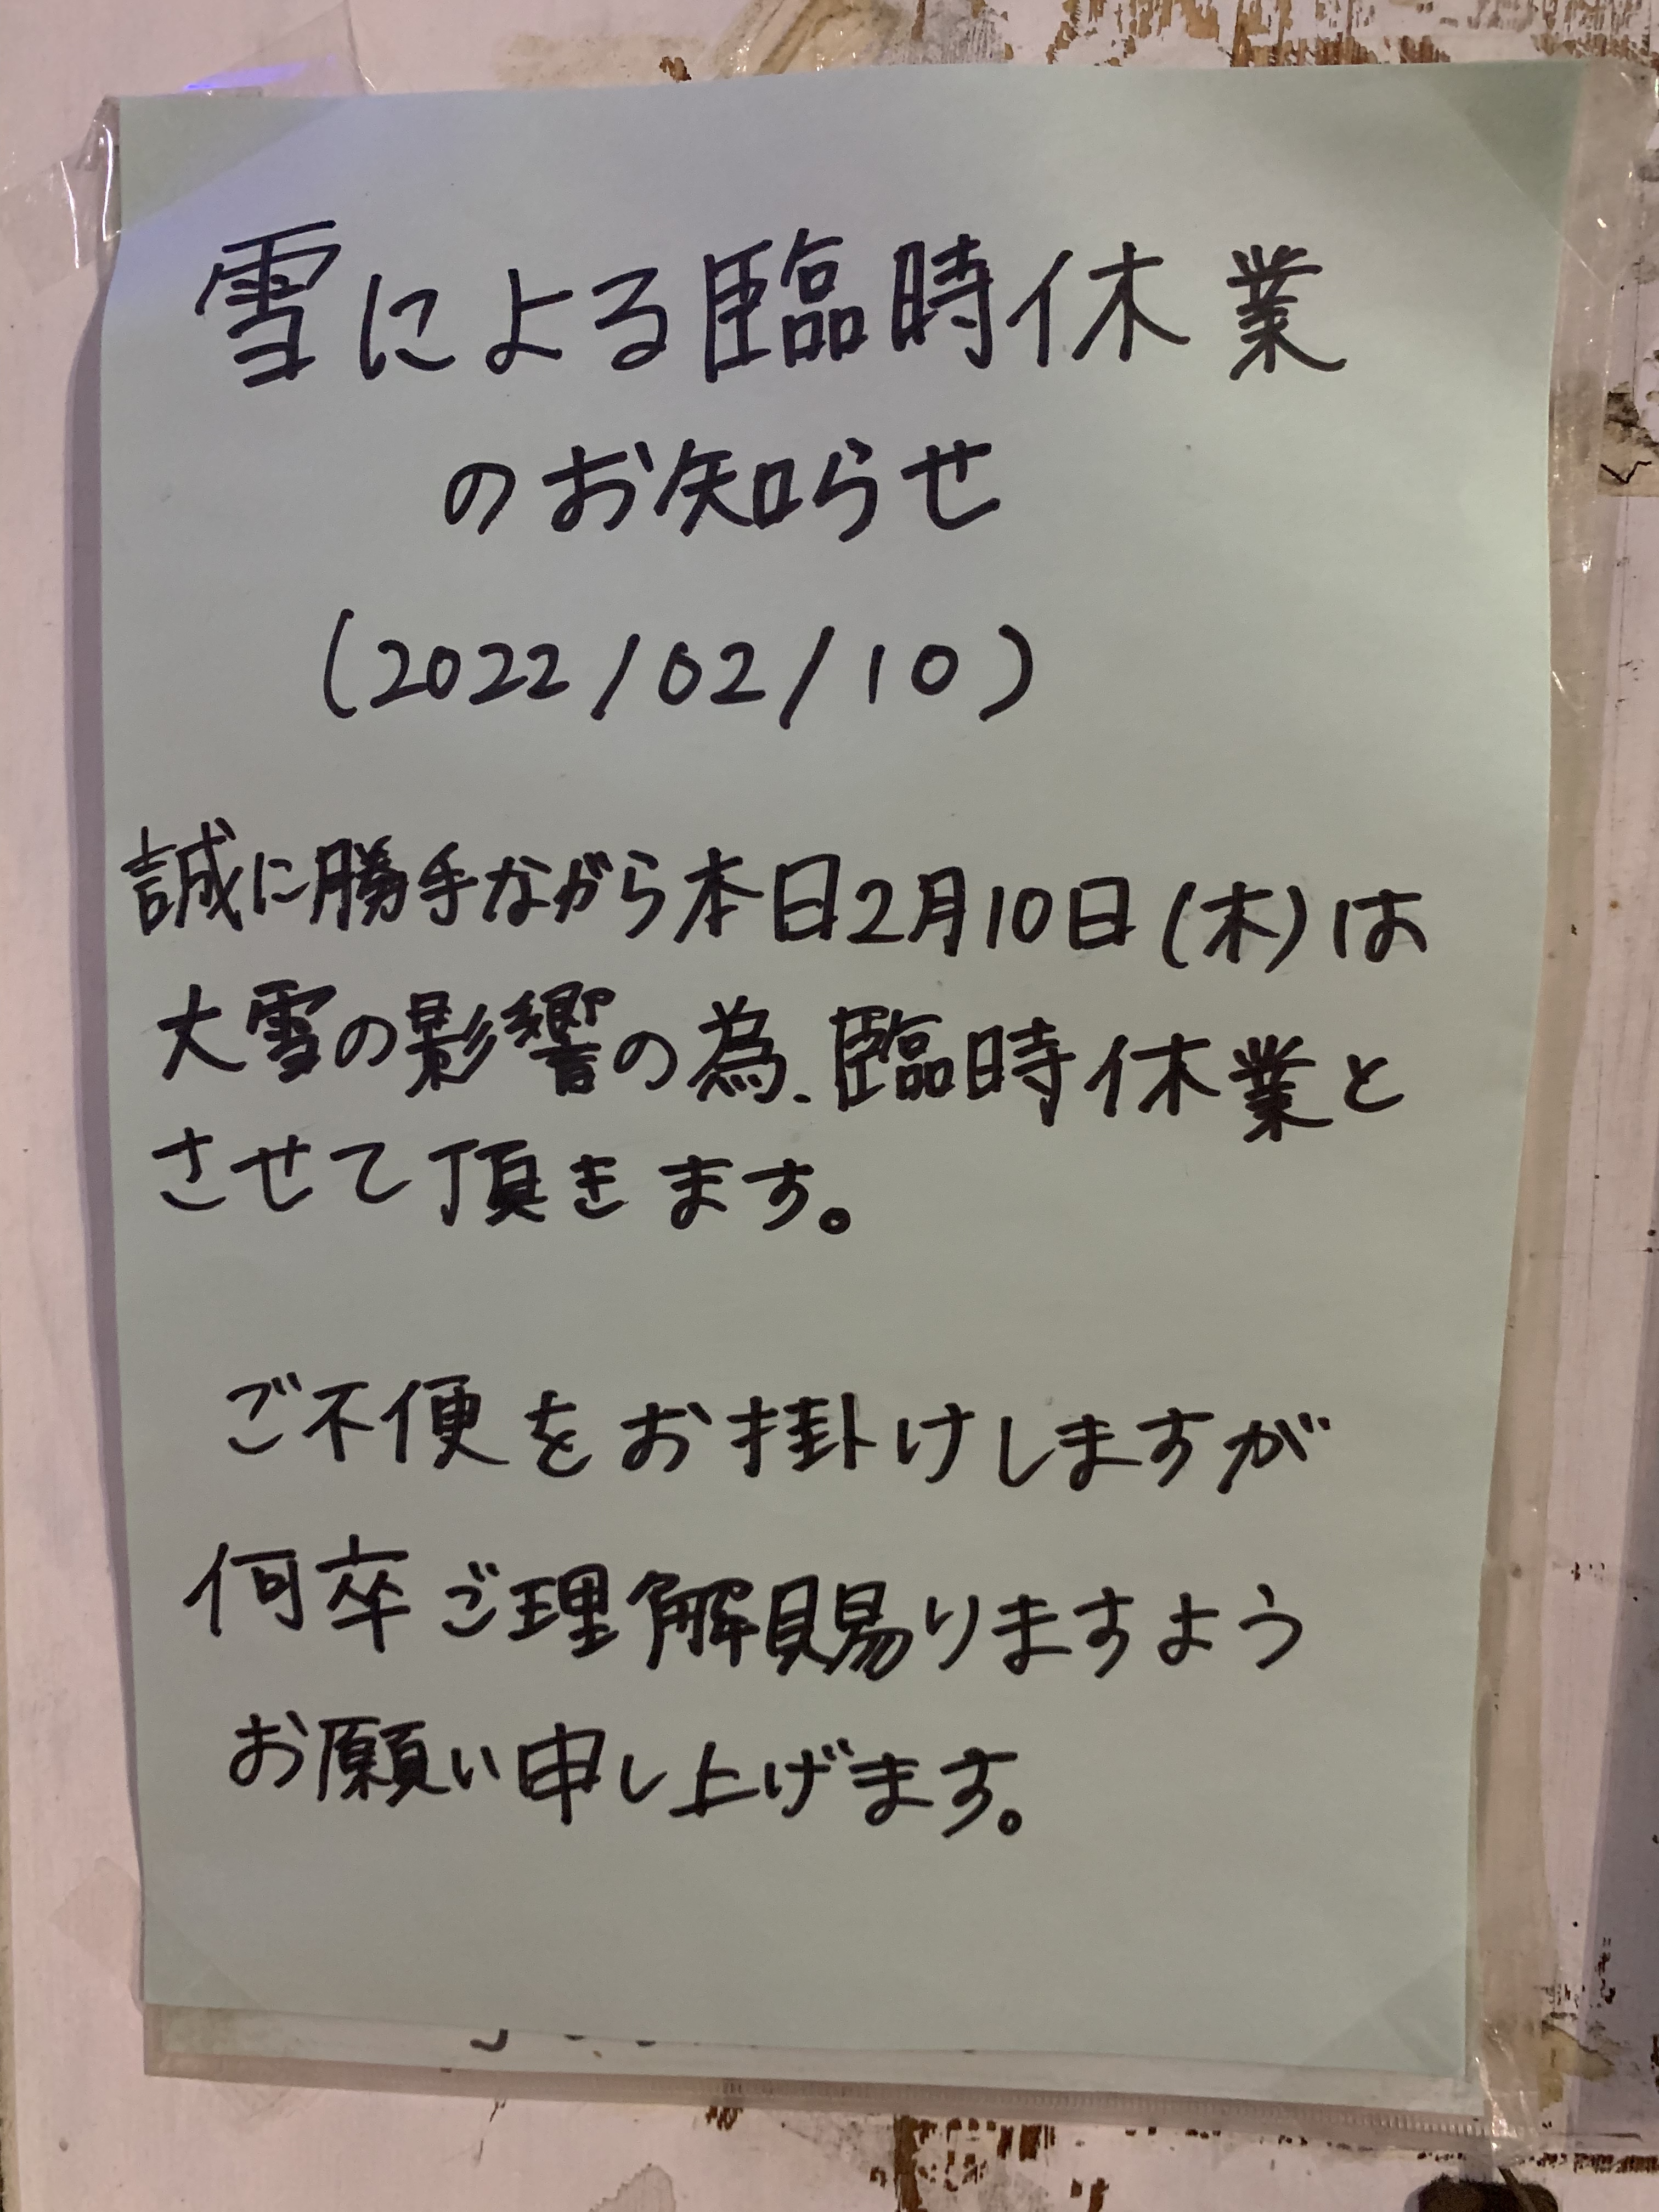 雪による臨時休業
のお知らせ
(2022/02/10)
誠に勝手ながら本日2月10日(木)は
大雪の影響の為、臨時休業と
させて頂きます。
ご不便をお掛けしますが
何卒ご理解賜りますよう
お願い申し上げます。